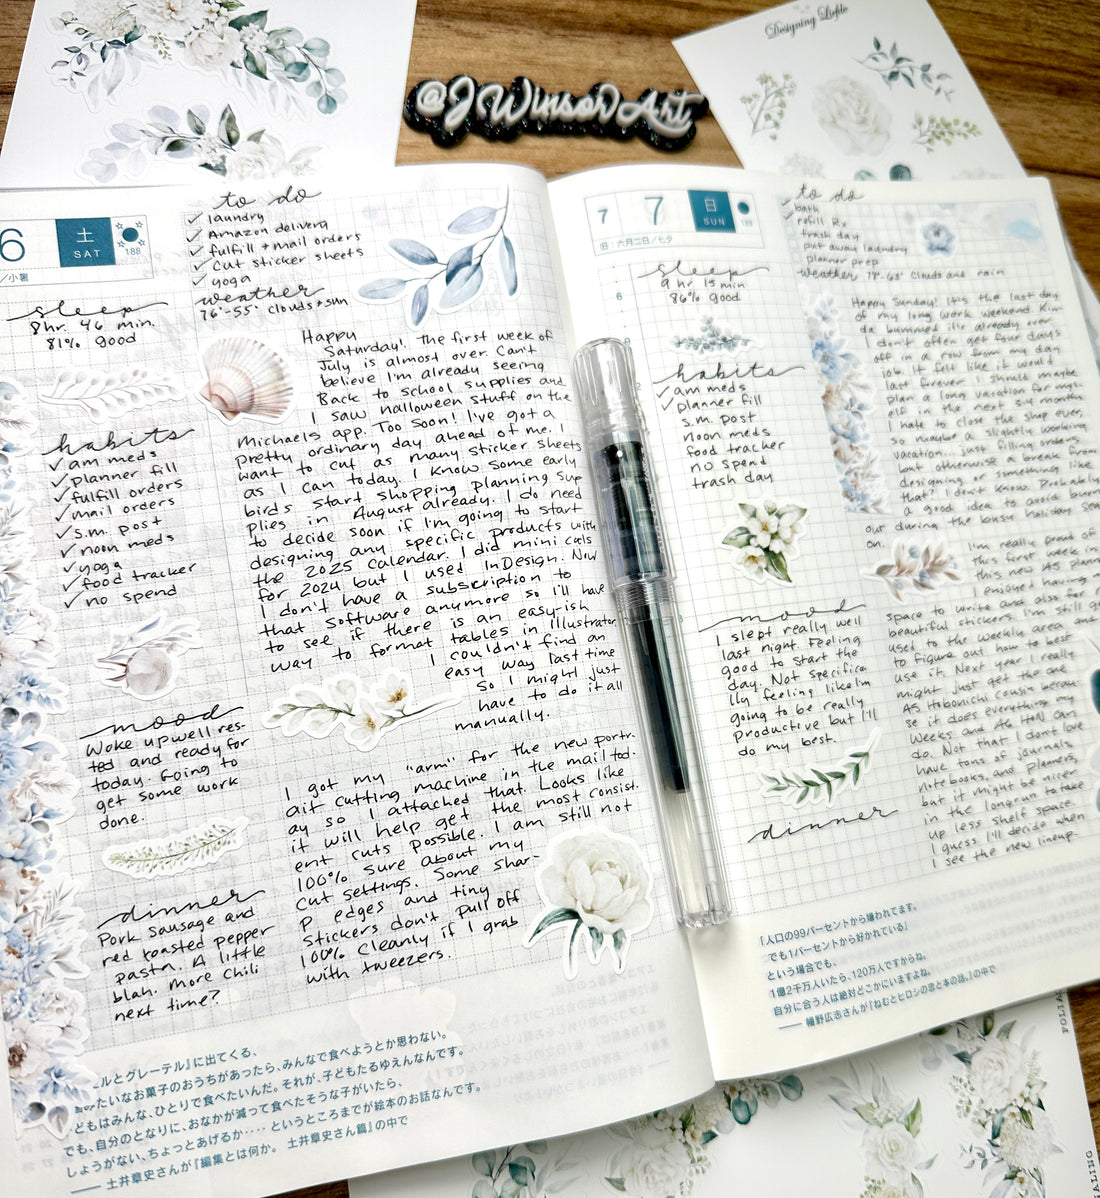 Designing Liefde
@JWinsorArt
6
土
SAT
188
/小暑
to do
✓ laundry
✓ Amazon delivery
✓ fulfill + mail orders
✓ cut sticker sheets
✓ yoga
weather
76°-55° clouds + sun
sleep
8hr. 46 min.
81% good
habits
✓ am meds
✓ planner fill
✓ fulfill orders
✓ mail orders
✓ s.m. post
✓ noon meds
✓ yoga
✓ food tracker
✓ no spend
mood
Woke up well res-
ted and ready for
today. Going to
get some work
done.
dinner
Pork sausage and
red roasted pepper
pasta. A little
blah. More chili
next time?
Happy
Saturday! The first week of
July is almost over. Can't
believe I'm already seeing
Back to school supplies and
I saw halloween stuff on the
Michaels app. Too soon! I've got a
pretty ordinary day ahead of me. I
want to cut as many sticker sheets
as I can today. I know some early
birds start shopping planning sup
plies in August already. I do need
to decide soon if I'm going to start
designing any specific products with
the 2025 calendar. I did mini cals
for 2024 but I used InDesign. Now
I don't have a subscription to
that software anymore so I'll have
to see if there is an easy-ish
way to format tables in Illustrator
I couldn't find an
easy way last time
so I might just
have to do it all
manually.
I got my "arm" for the new portr-
ait cutting machine in the mail tod-
ay so I attached that. Looks like
it will help get the most consist-
ent cuts possible. I am still not
100% sure about my
cut settings. Some shar-
p edges and tiny
stickers don't pull off
100% cleanly if I grab
with tweezers.
ルとグレーテル』に出てくる、
たいなお菓子のおうちがあったら、みんなで食べようとか思わない。
どもはみんな、ひとりで食べたいんだ。それが、子どもたるゆえんなんです。
でも、自分のとなりに、おなかが減って食べたそうな子がいたら、
しょうがない、ちょっとあげるか‥‥というところまでが絵本のお話なんです。
── 土井章史さんが『編集とは何か。 土井章史さん篇』の中で
7
7
日
SUN
189
旧:六月二日/七夕
to do
✓ bath
✓ refill Rx
trash day
put away laundry
planner prep
weather 78°-60° clouds and rain
sleep
9 hr 15 min
86% good
habits
✓ am meds
✓ planner fill
s.m. post
noon meds
food tracker
no spend
trash day
mood
I slept really well
last night. Feeling
good to start the
day. Not specifica
lly feeling like I'm
going to be really
productive but I'll
do my best.
dinner
Happy Sunday! It's the last day
of my long work weekend. Kin-
da bummed it's already over.
I don't often get four days
off in a row from my day
job. It felt like it would
last forever. I should maybe
plan a long vacation for mys-
elf in the next 3-4 months.
I hate to close the shop ever
so maybe a slightly working
vacation... just filling orders
but otherwise a break from
designing or something like
that? I don't know. Probably
a good idea to avoid burn
out during the busy holiday sea
on.
I'm really proud of
this first week in
this new A5 plann
I enjoy having a
space to write and also for
beautiful stickers. I'm still g
used to the weekly area and
to figure out how to best
use it. Next year I really
might just get the one
A5 Hobonichi cousin becau-
se it does everything my
Weeks and A6 Hon can
do. Not that I don't love
have tons of journals,
notebooks, and planners,
but it might be nicer
in the longrun to take
up less shelf space.
I guess I'll decide when
I see the new lineup.
「人口の99パーセントから嫌われてます。
でも1パーセントから好かれている」
という場合でも、
1億2千万人いたら、120万人ですからね。
自分に合う人は絶対どこかにいますよね。
── 幡野広志さんが『ねむとヒロシの恋と本の話。』の中で